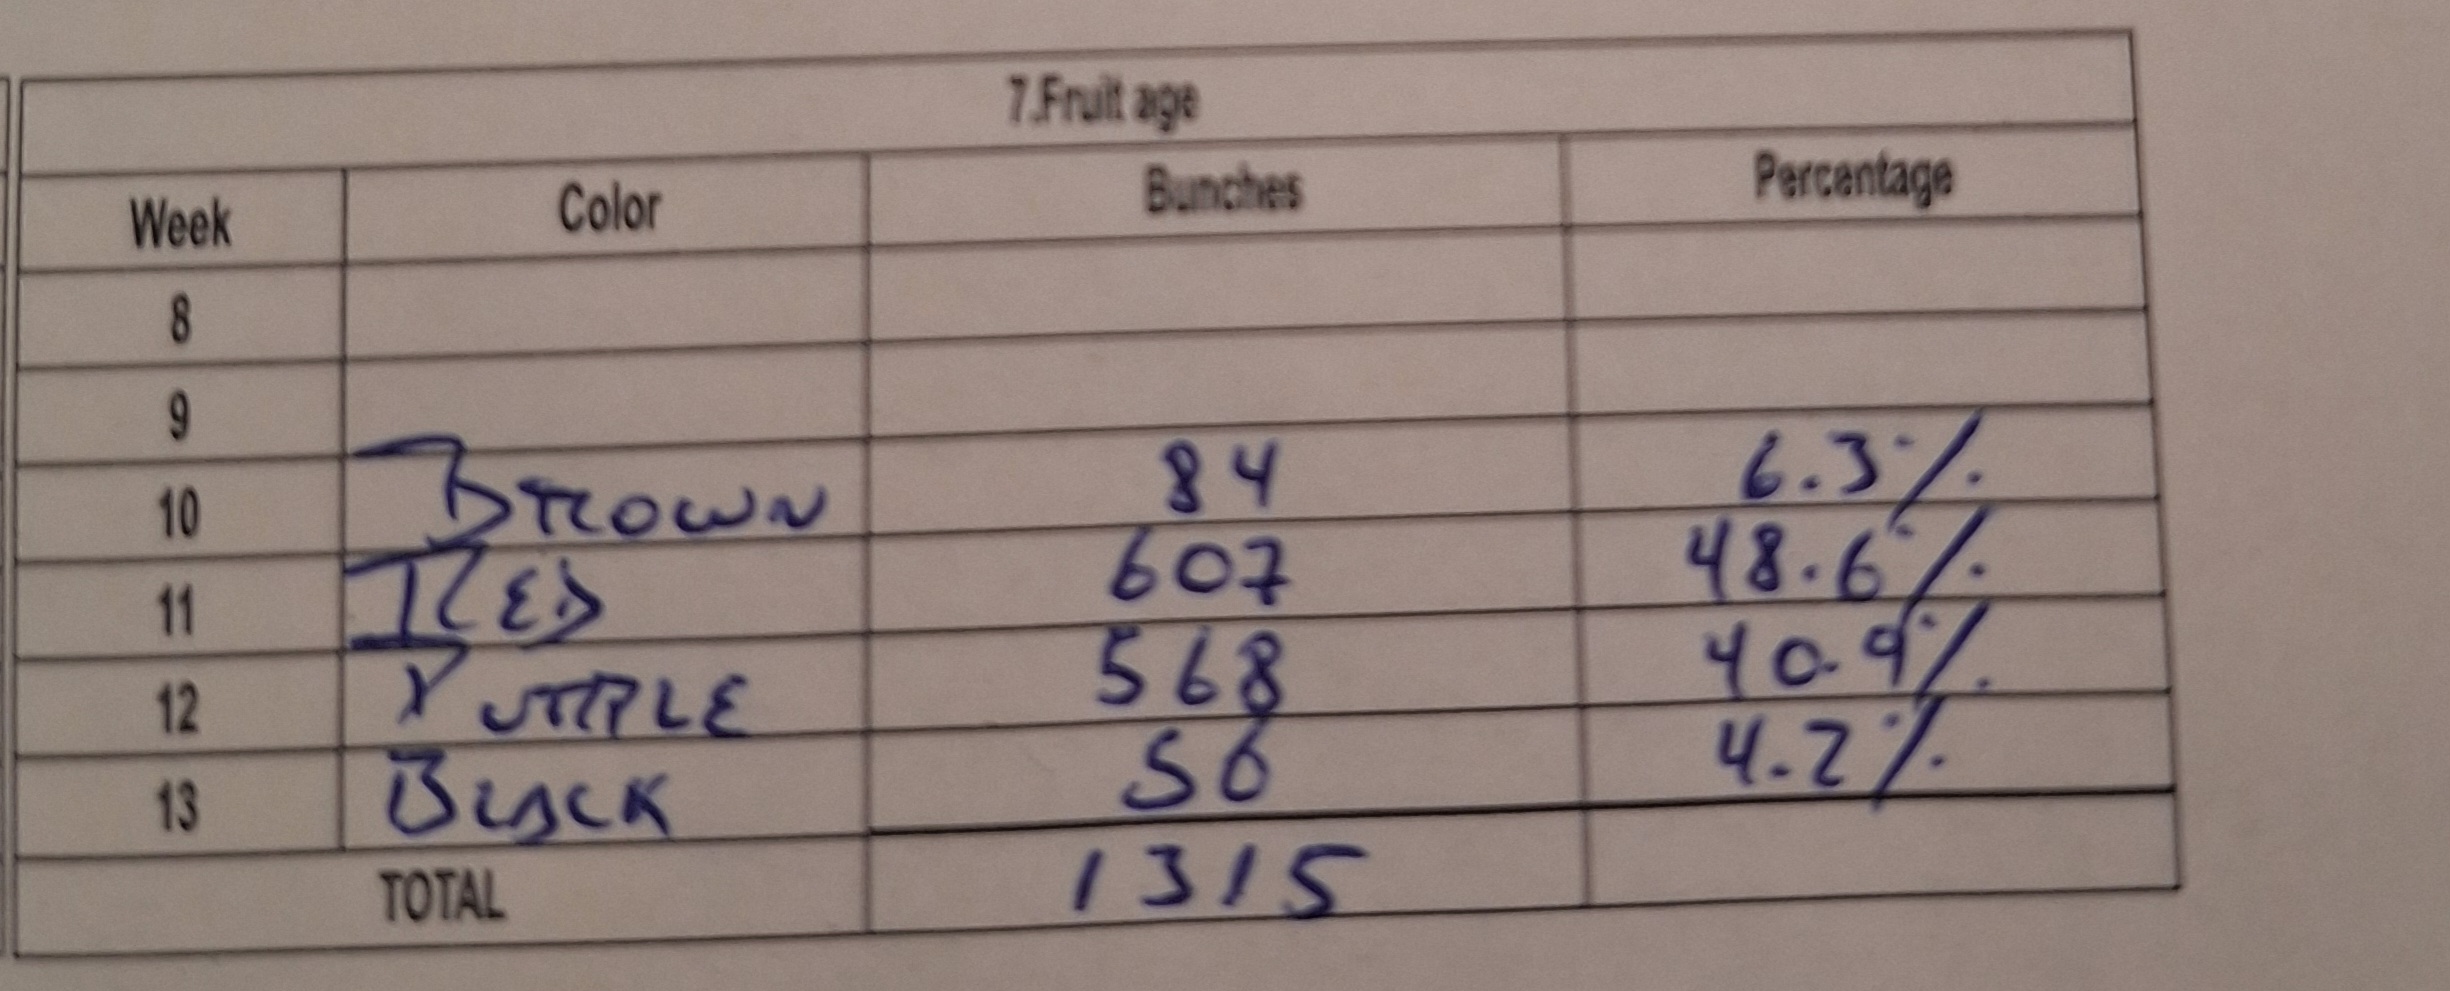 7.Fruit age
Week Color Bunches Percentage
8
9
10 BROWN 84 6.3%
11 RED 607 48.6%
12 PURPLE 568 40.9%
13 BLACK 56 4.2%
TOTAL 1315